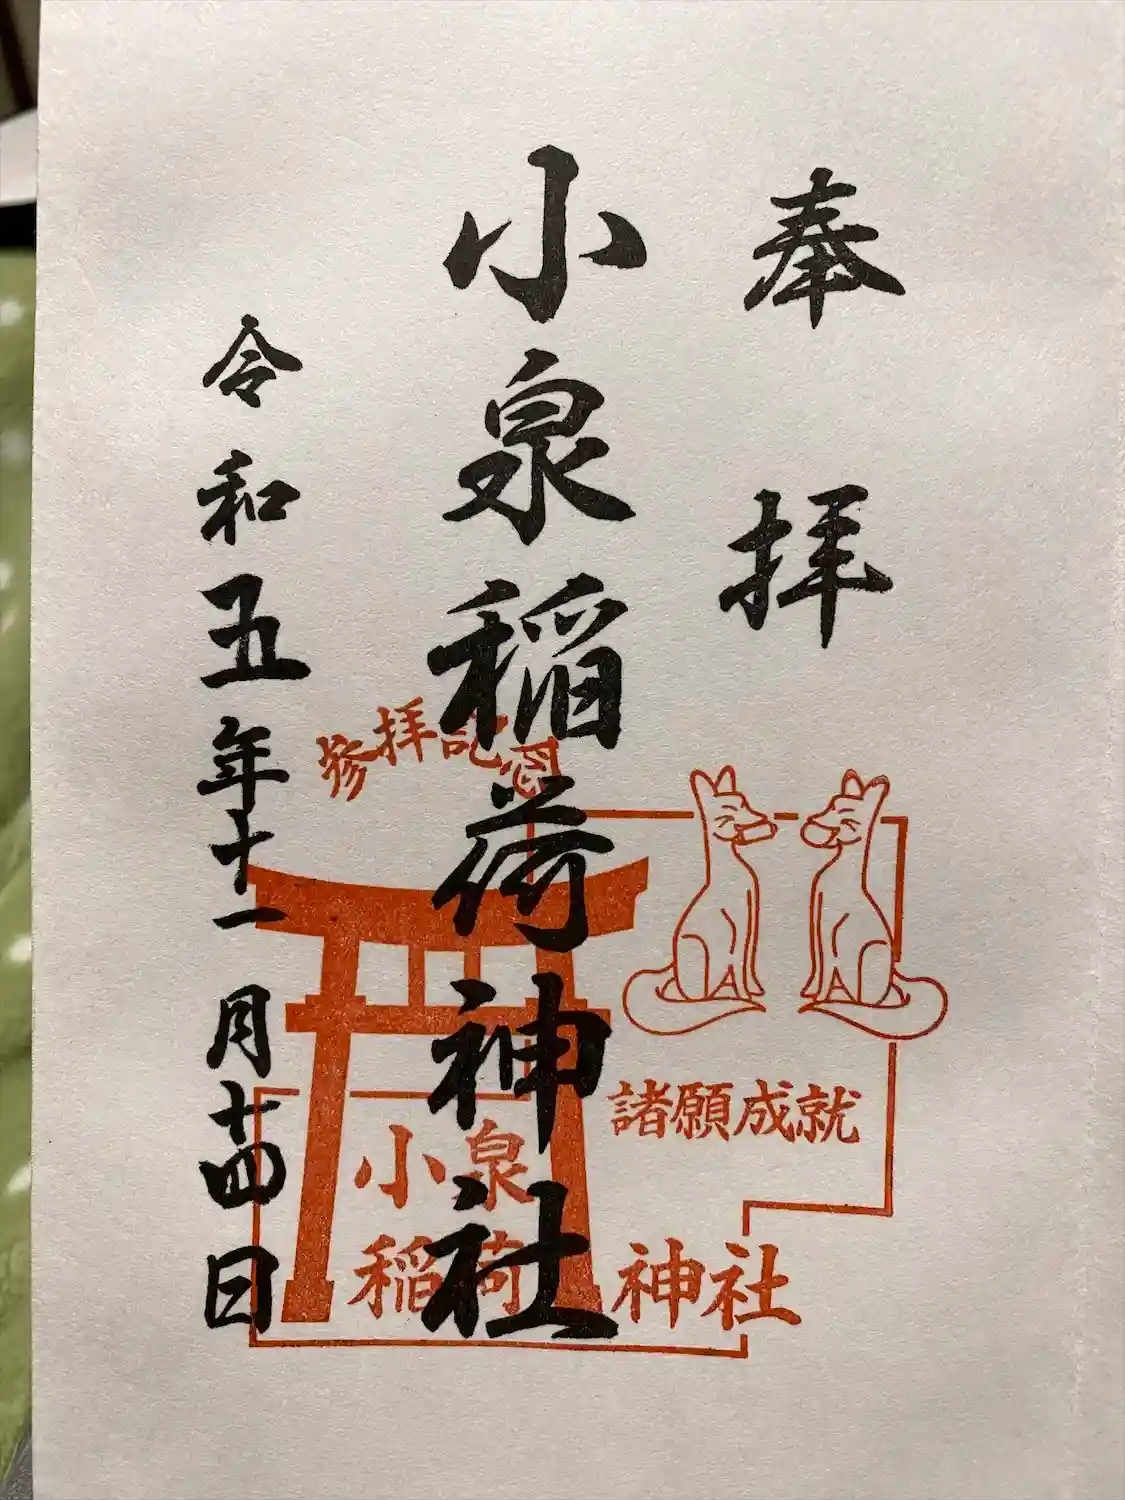 奉拝
小泉稲荷神社
令和五年十一月十四日
参拝記念
諸願成就
小泉
稲荷神社